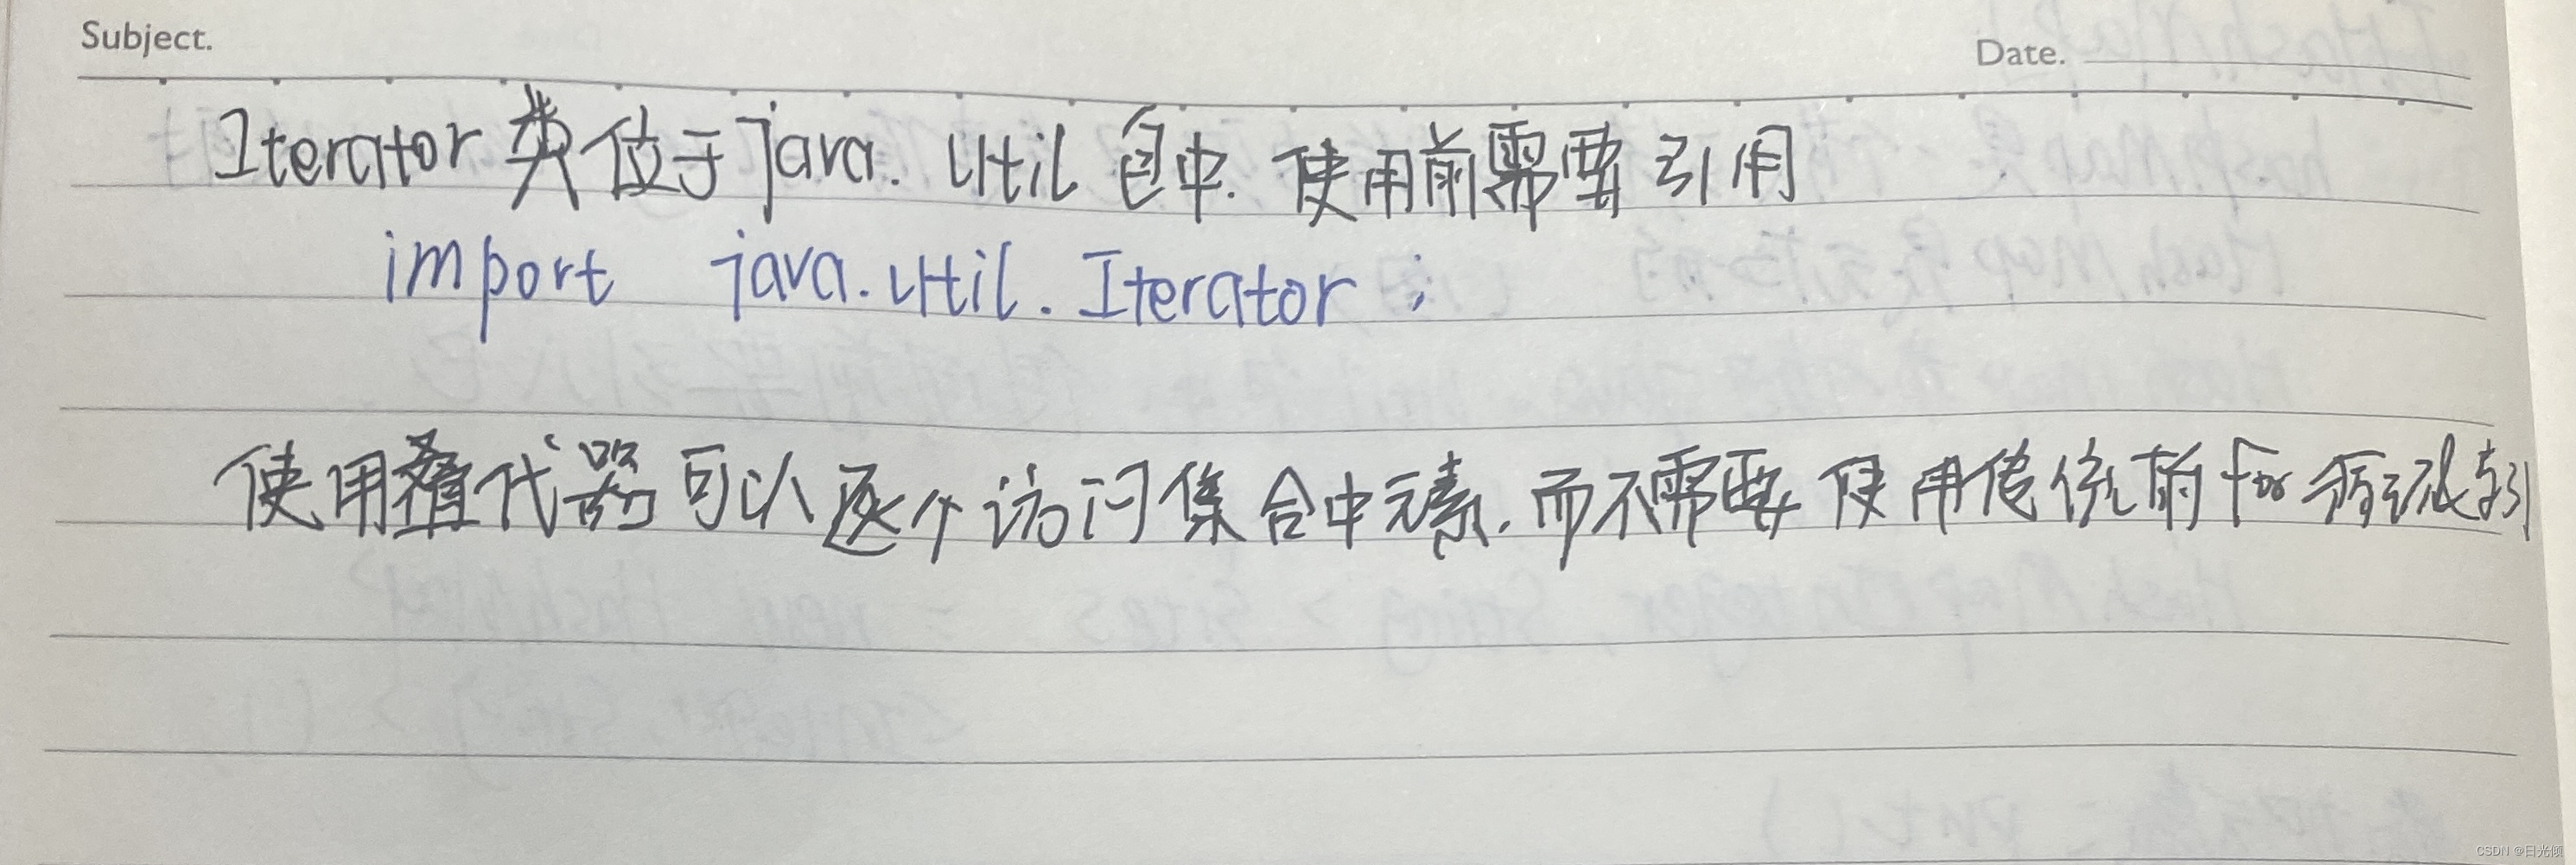 Subject.
Date.
Iterator 类位于 java.util 包中.使用前需要引用
import java.util.Iterator;
使用叠代器可以逐个访问集合中元素.而不需要使用传统的for循环索引
CSDN @日光倾